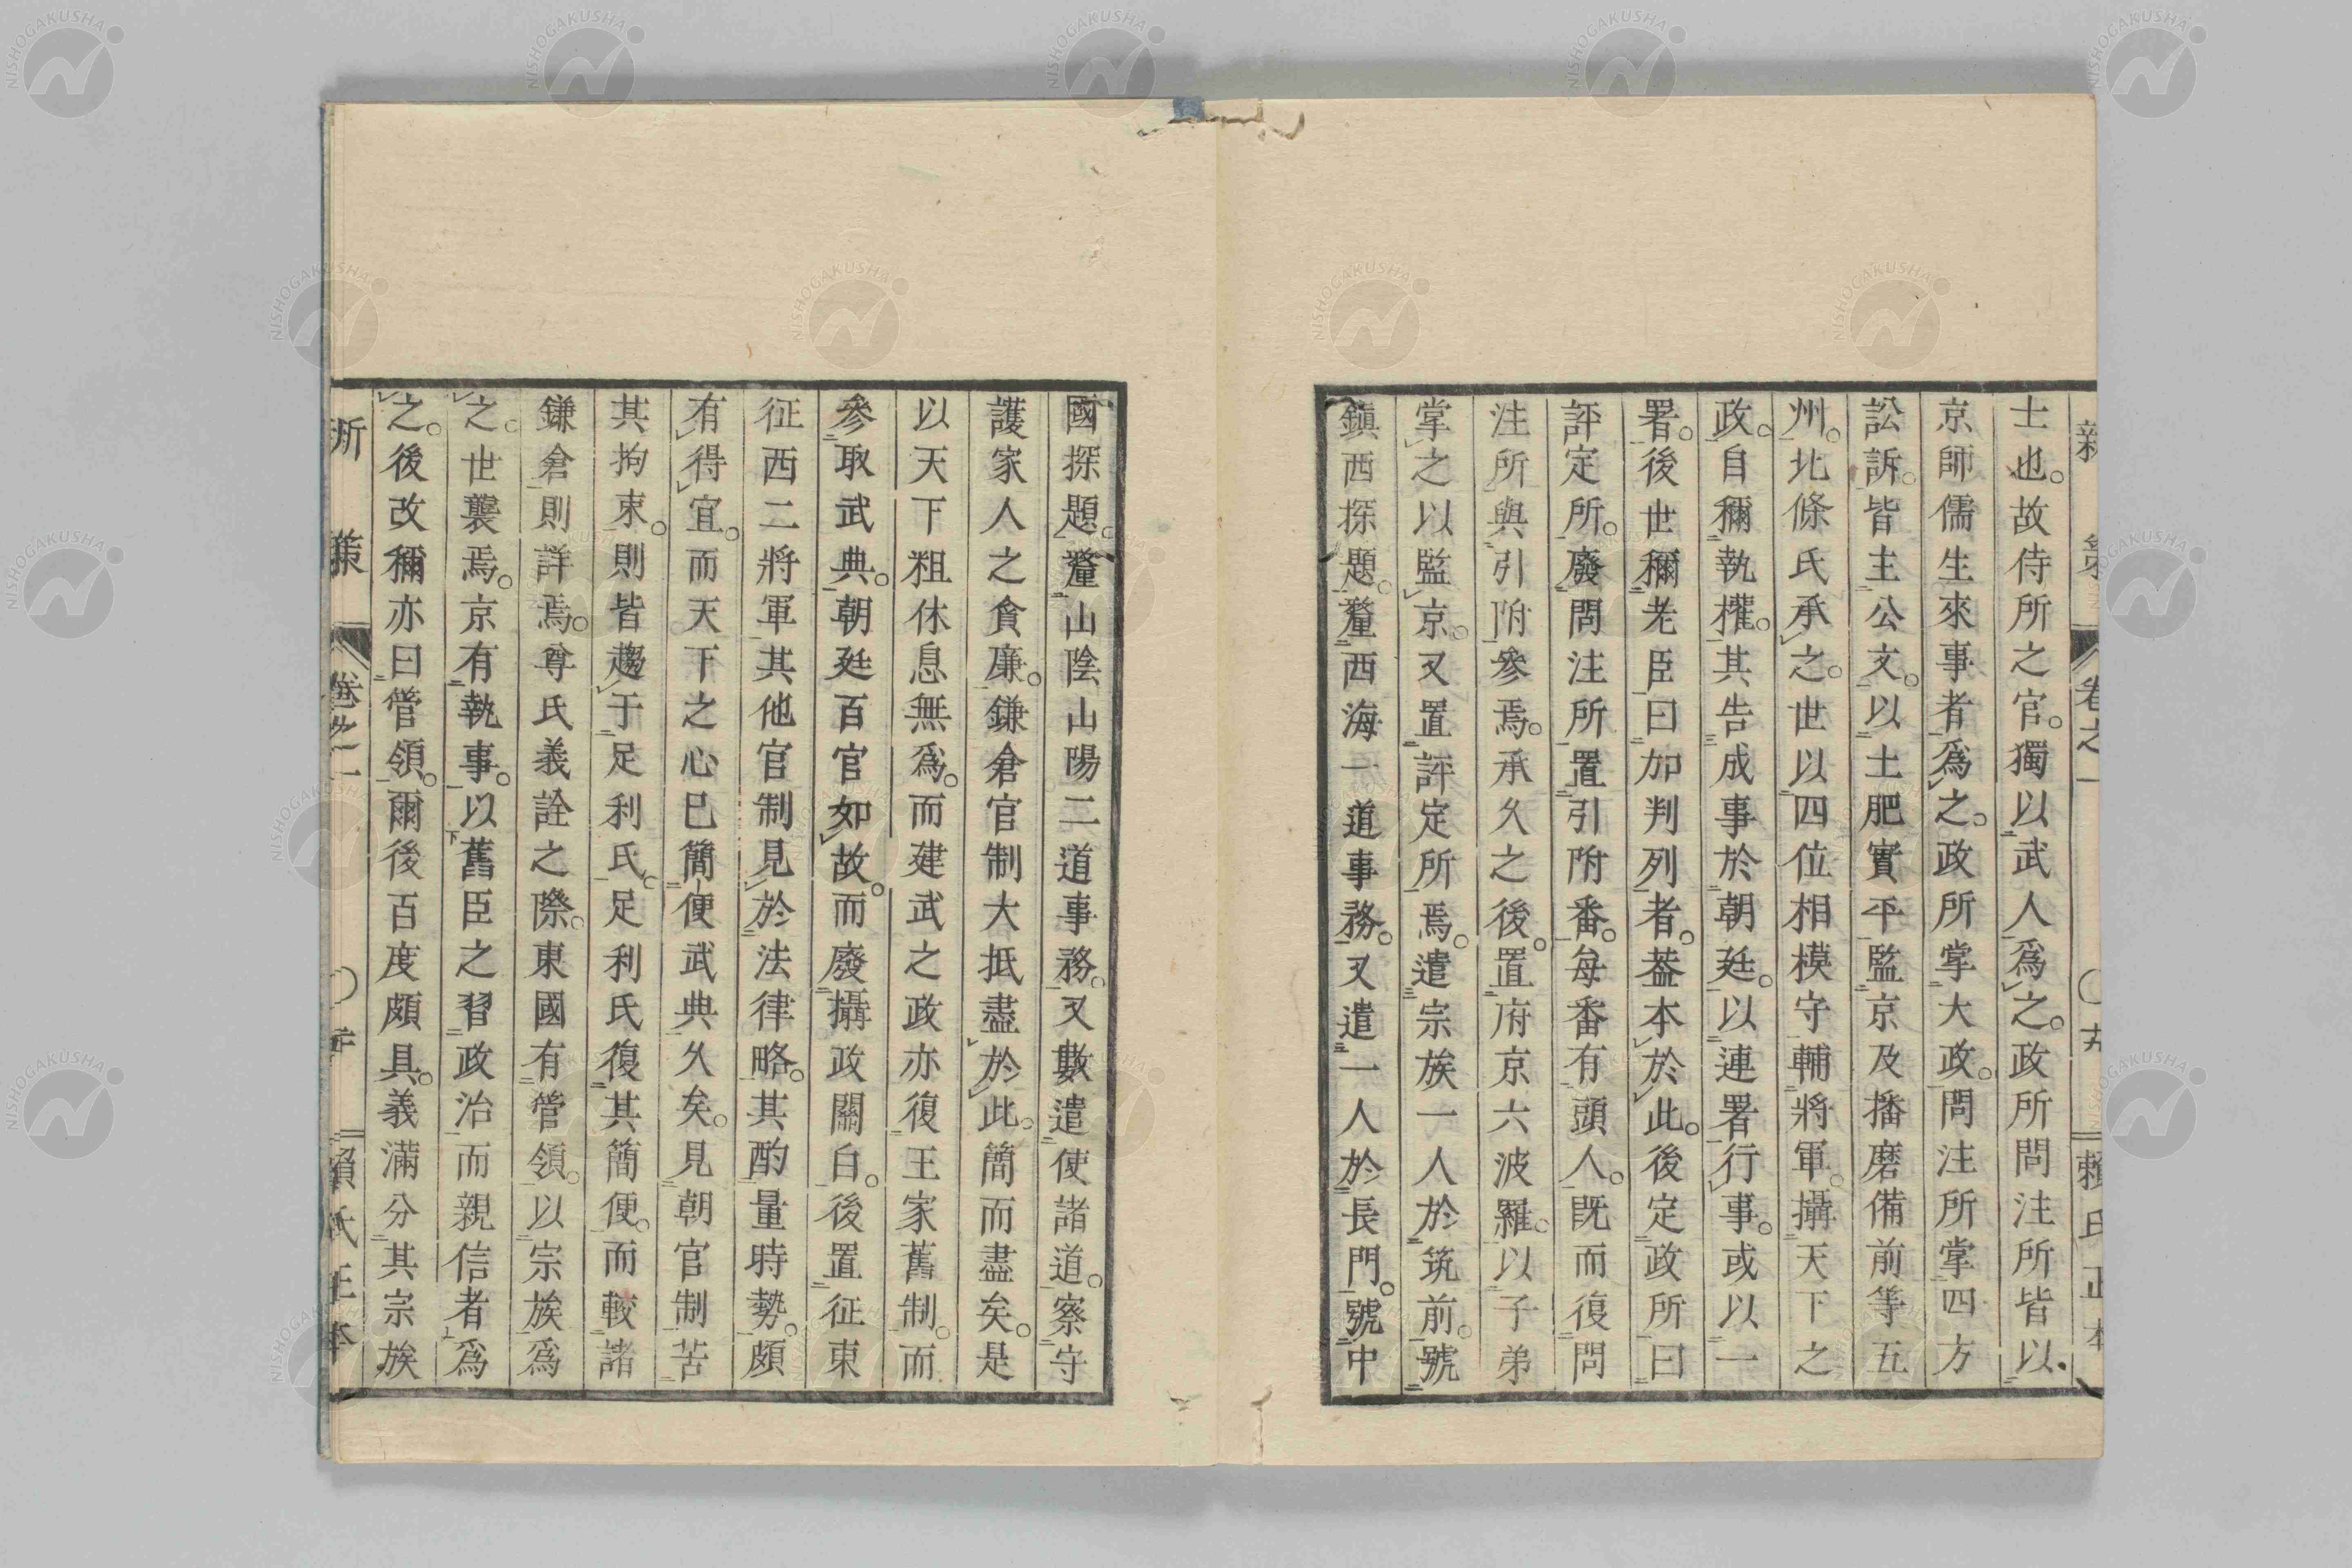 新策 卷之一 ○十九 賴氏正本
士也。故侍所之官。獨以武人爲之。政所問注所皆以
京師儒生來事者爲之。政所掌大政。問注所掌四方
訟訴。皆主公文。以土肥實平監京及播磨備前等五
州。北條氏承之。世以四位相模守輔將軍。攝天下之
政。自稱執權。其告成事於朝廷。以連署行事。或以一
署。後世稱老臣曰加判列者。葢本於此。後定政所曰
評定所。廢問注所置引附番。每番有頭人。既而復問
注所與引附參焉。承久之後。置府京六波羅。以子弟
掌之以監京。又置評定所焉。遣宗族一人於筑前。號
鎭西探題。釐西海一道事務。又遣一人於長門。號中
國探題。釐山陰山陽二道事務。又數遣使諸道。察守
護家人之貪廉。鎌倉官制大抵盡於此。簡而盡矣。是
以天下粗休息無爲。而建武之政亦復王家舊制。而
參取武典。朝廷百官如故。而廢攝政關白。後置征東
征西二將軍其他官制見於法律略。其酌量時勢。頗
有得宜。而天下之心已簡便武典久矣。見朝官制苦
其拘束。則皆趨于足利氏。足利氏復其簡便。而較諸
鎌倉則詳焉。尊氏義詮之際。東國有管領。以宗族爲
之。世襲焉。京有執事。以舊臣之習政治而親信者爲
之。後改稱亦曰管領。爾後百度頗具。義滿分其宗族
新策 卷之一 ○二十 賴氏正本